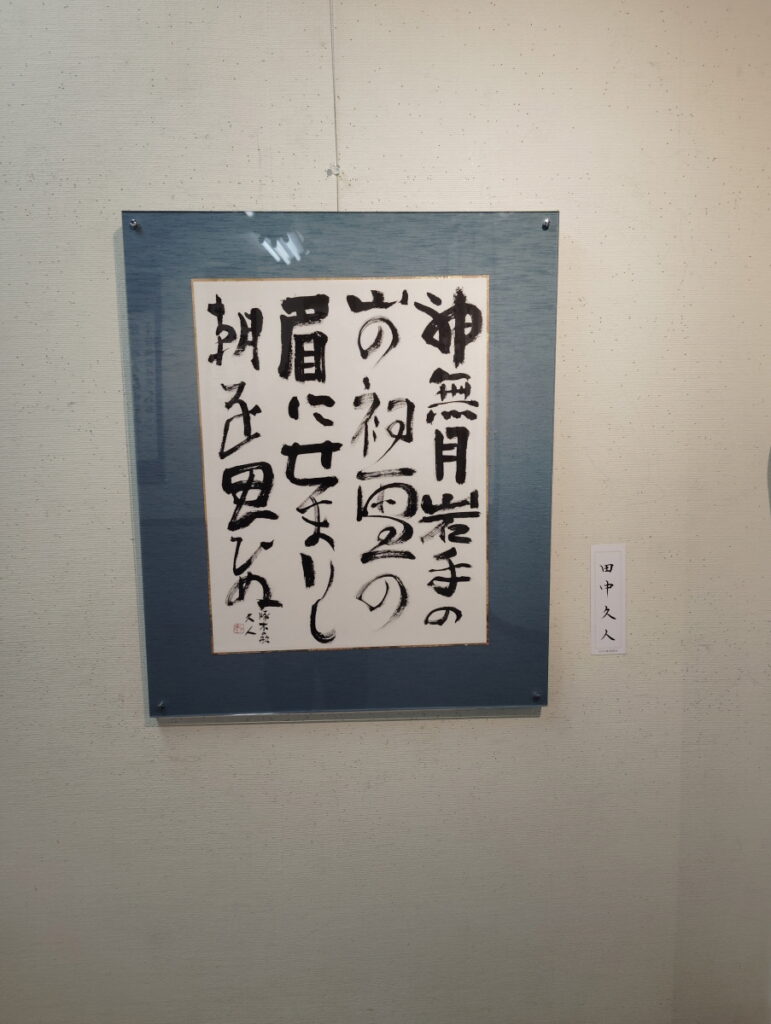 神無月岩手の
山の初雪の
眉にせまりし
朝を思ひぬ
啄木歌
久人
田中久人